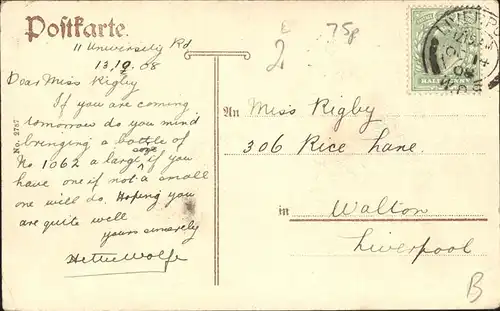 Postkarte.
11 University Rd
13.10.08
Dear Miss Rigby
If you are coming
tomorrow do you mind
bringing a bottle of
No 1062 a large one if you
have one if not a small
one will do. Hoping you
are quite well
yours sincerely
Hettie Wolfe
No. 2787
2
75p
HALFPENNY
LIVERPOOL
OC 14
08
An Miss Rigby
306 Rice Lane.
in Walton
Liverpool
B